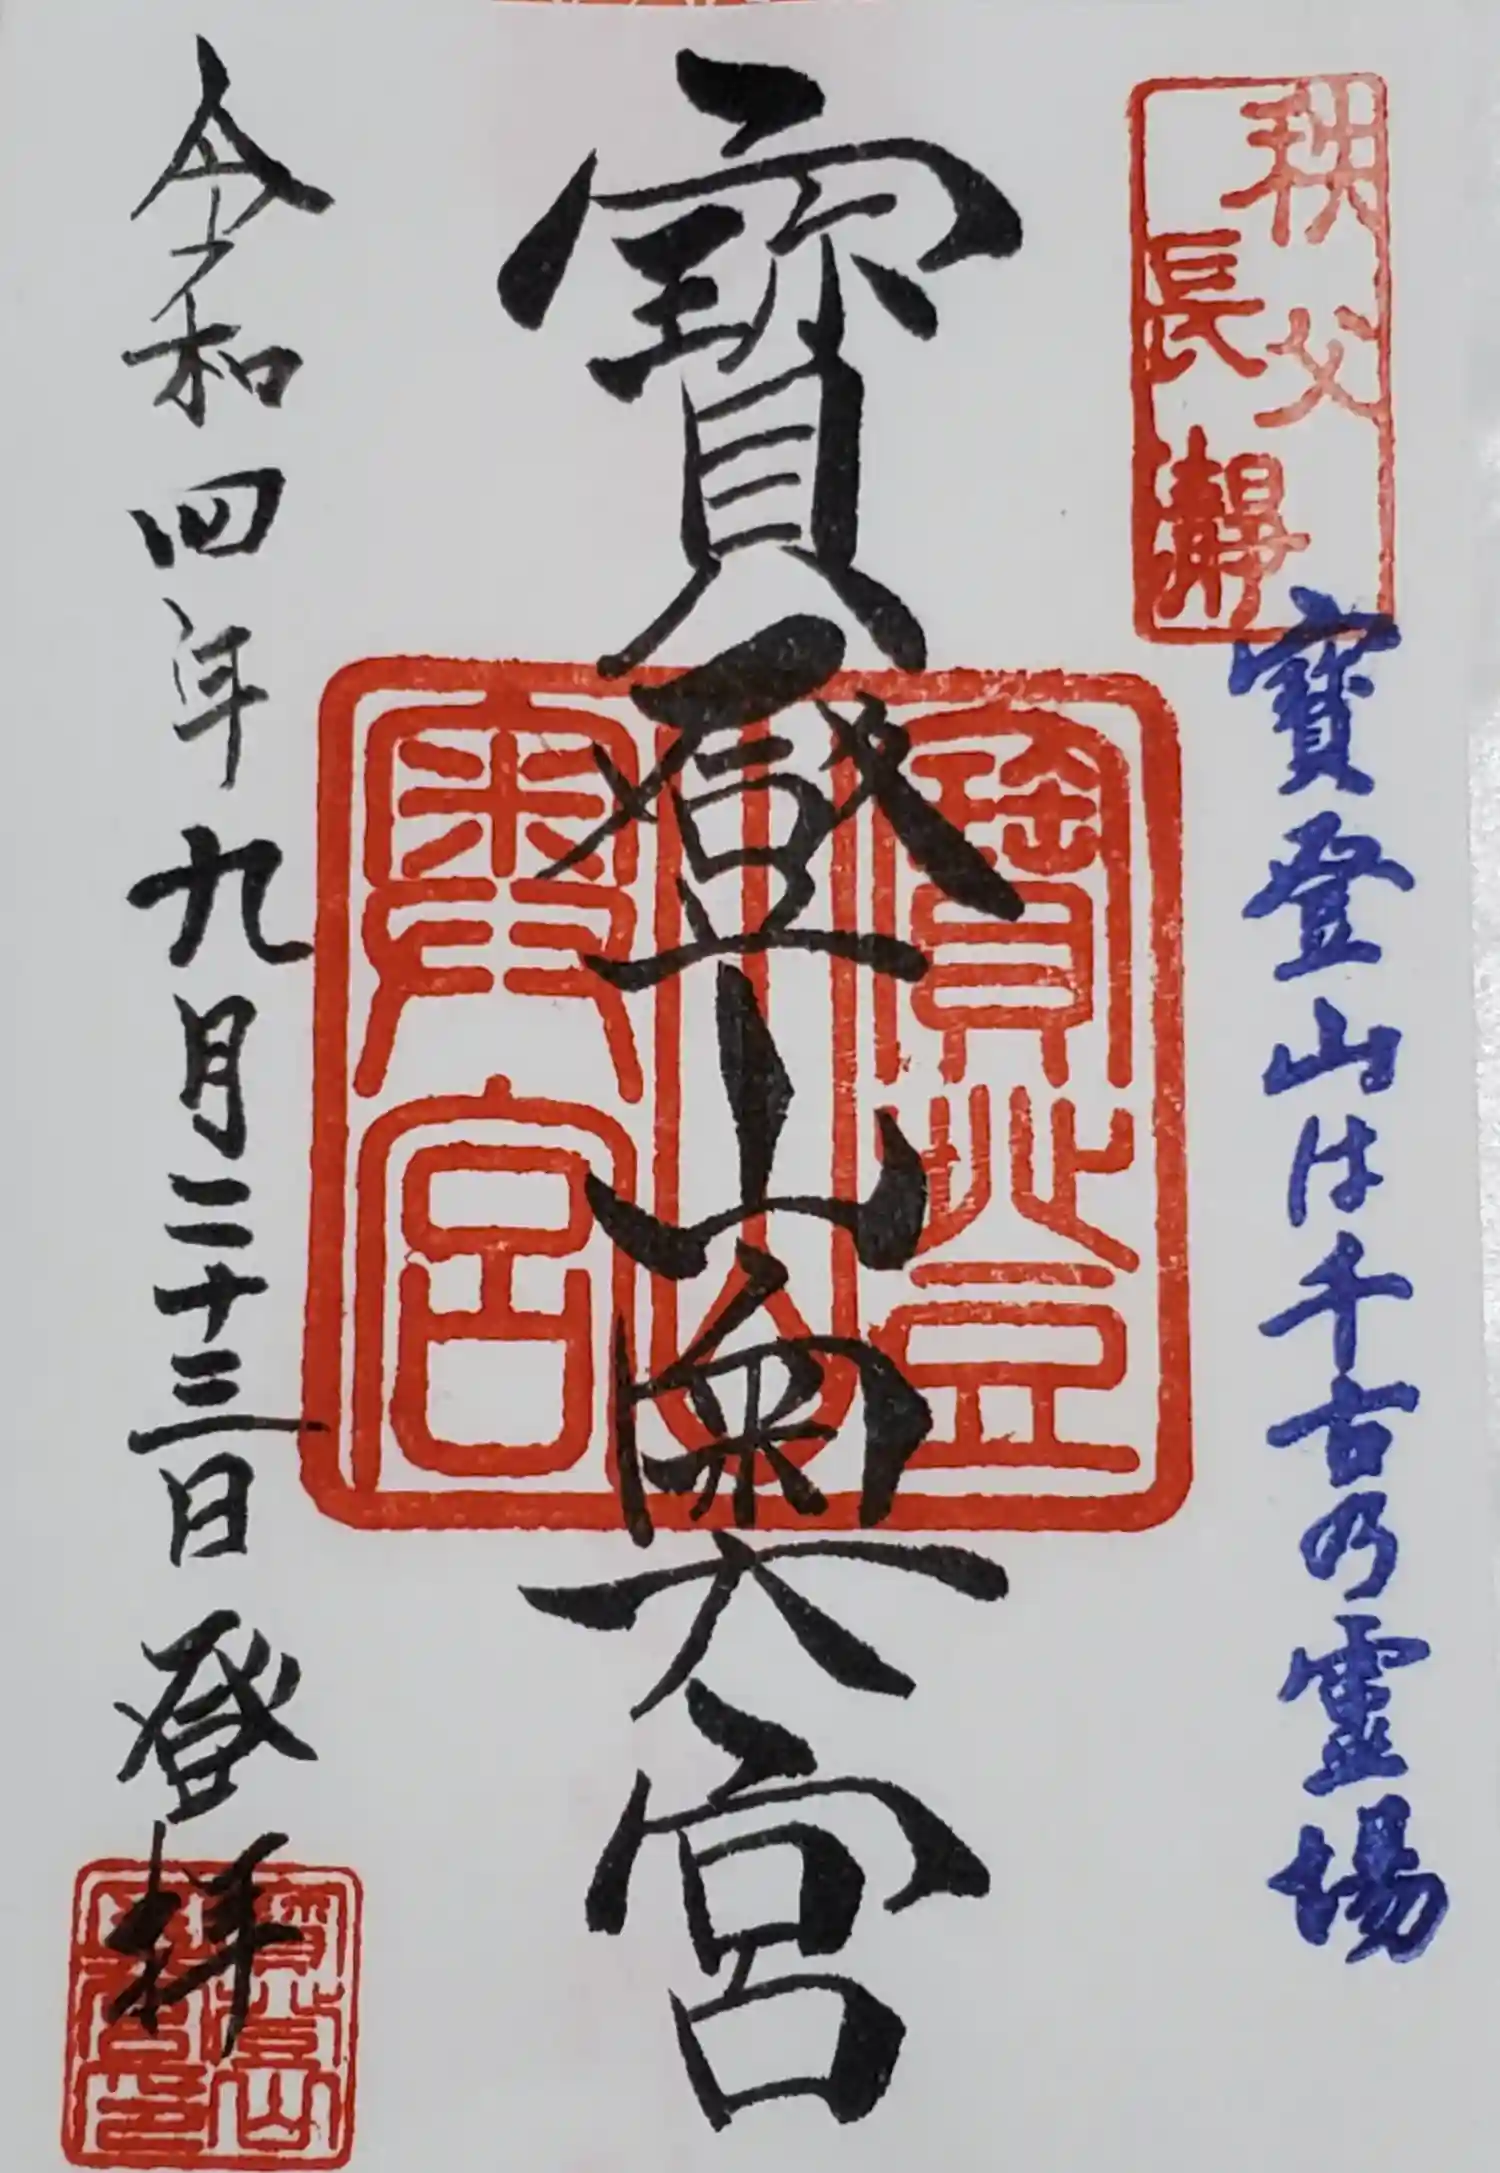 秩父
長瀞
寶登山は千古乃霊場
寶登山奥宮
寶登山奥宮
令和四年九月二十三日 登拝